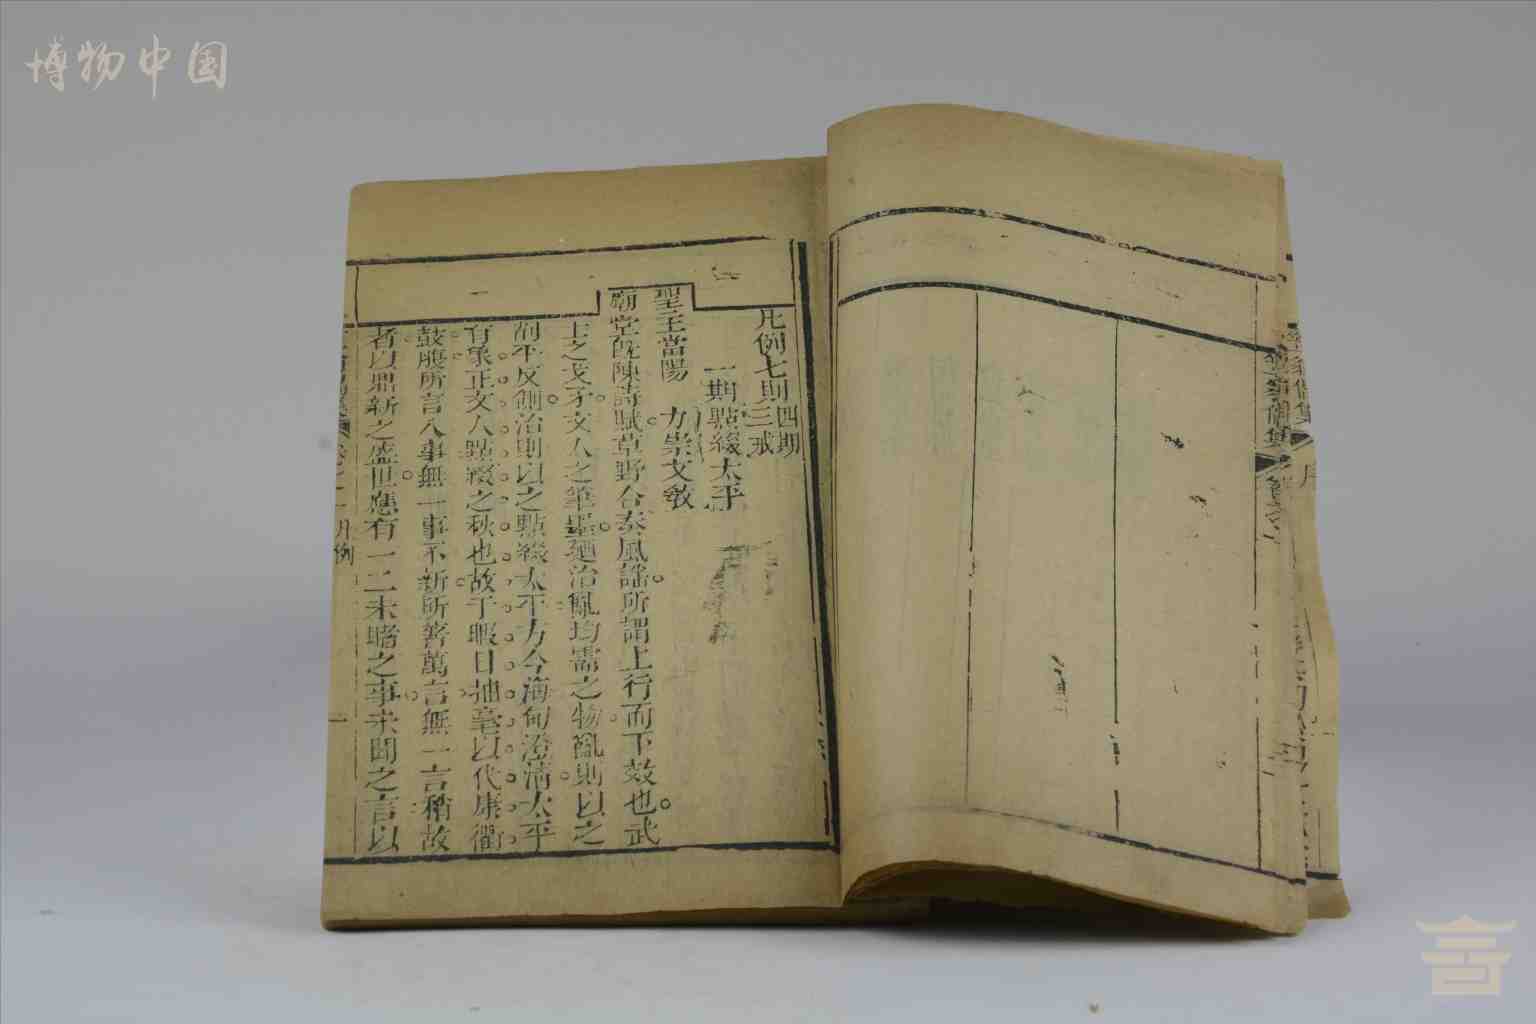 博物中国
凡例七則四期三戒
一期點綴太平
聖主當陽 力崇文敎
廟堂旣陳詩賦草野合奏風謠所謂上行而下效也武
士之戈矛文人之筆墨廼治亂均需之物亂則以之
削平反側治則以之點綴太平方今海甸澄清太平
有象正文人點綴之秋也故于暇日抽毫以代康衢
鼓腹所言八事無一事不新所著萬言無一言稍故
者以鼎新之盛世應有一二未睹之事未聞之言以
凡例
一
序